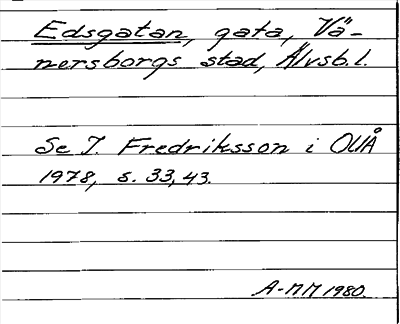 Edsgatan, gata, Vä-
nersborgs stad, Älvsb.l.
Se I. Fredriksson i OUÅ
1978, s. 33, 43.
A-MM 1980.